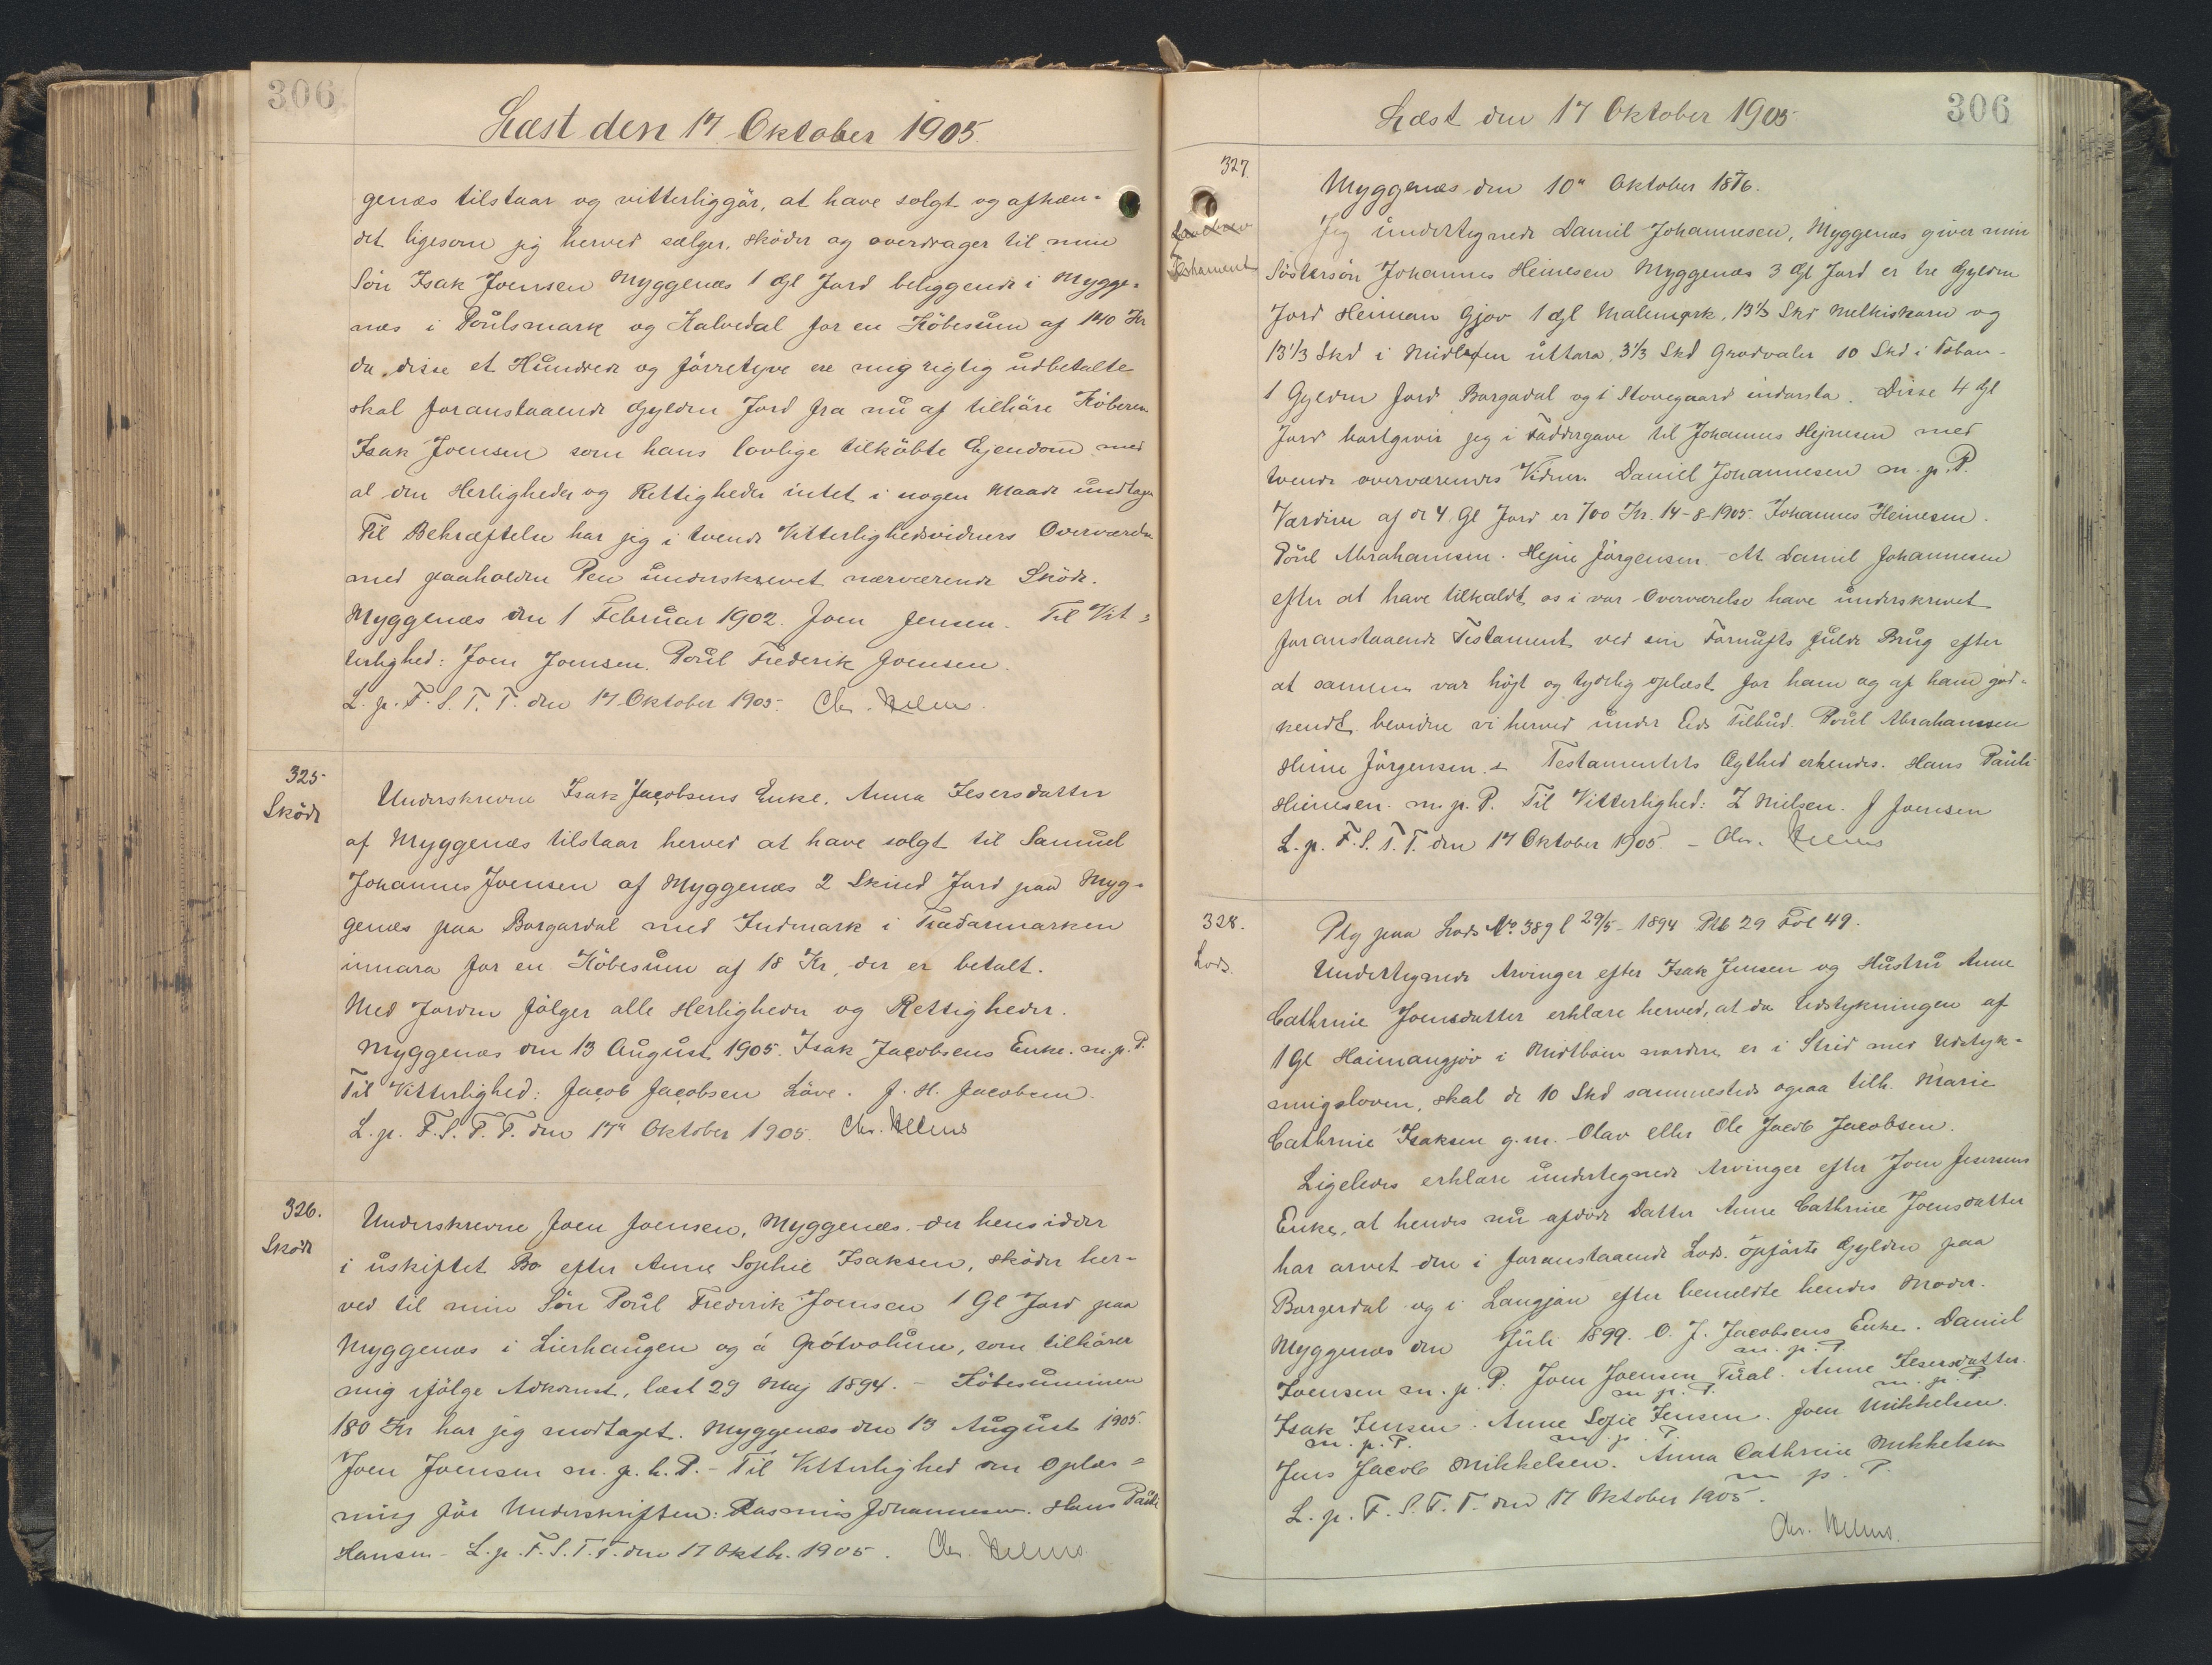 306
Læst den 17 Oktober 1905.
genæs tilstaar og vitterliggör, at have solgt og afhæn-
det ligesom jeg herved sælger, sköder og overdrager til min
Sön Isak Joensen Myggenæs 1 Gl Jord beliggende i Mygge-
næs i Poulsmark og Kalvedal for en Köbesum af 140 Kr
da disse et Hundrede og förretyve ere mig rigtig udbetalte
skal foranstaaende Gylden Jord fra nu af tilhöre Köberen
Isak Joensen som hans lovlige tilköbte Ejendom med
al den Herligheder og Rettigheder intet i nogen Maade undtagen
Til Bekræftelse har jeg i tvende Vitterlighedsvidners Overværelse
med paaholden Pen underskrevet nærværende Sköde.
Myggenæs den 1 Februar 1902. Joen Jensen. Til Vit-
terlighed: Joen Joensen. Poul Frederik Joensen.
L. p. F. S. T. T. den 17 Oktober 1905. Chr. Helms.
325
Sköde
Underskrevne Isak Jacobsens Enke, Anna Jesersdatter
af Myggenæs tilstaar herved at have solgt til Samuel
Johannes Joensen af Myggenæs 2 Skind Jord paa Myg-
genæs paa Borgardal med Indmark i Tradarmarken
innara for en Köbesum af 18 Kr, der er betalt.
Med Jorden fölger alle Herligheder og Rettigheder.
Myggenæs den 13 August 1905. Isak Jacobsens Enke. m. p. P.
Til Vitterlighed: Jacob Jacobsen Löve. J. H. Jacobsen.
L. p. F. S. T. T. den 17" Oktober 1905. Chr. Helms
326.
Sköde
Underskrevne Joen Joensen, Myggenæs, der hensidder
i uskiftet Bo efter Anne Sophie Isaksen, sköder her-
ved til min Sön Poul Frederik Joensen 1 Gl Jord paa
Myggenæs i Lierhaugen og á Grótvolinn, som tilhörer
mig ifölge Adkomst, læst 29 Maj 1894. - Köbesummen
180 Kr har jeg modtaget. Myggenæs den 13 August 1905.
Joen Joensen m. p. h. P. - Til Vitterlighed om Oplæs-
ning för Underskriften: Rasmus Johannesen. Hans Pauli
Hansen - L. p. F. S. T. T. den 17 Oktbr. 1905. Chr. Helms
Læst den 17 Oktober 1905
306
327.
Gavebrev
Testament
Myggenæs den 10" Oktober 1876.
Jeg undertegnede Daniel Johannesen, Myggenæs giver min
Söstersön Johannes Heinesen Myggenæs 3 Gl Jord er tre Gylden
Jord Heiman Gjov 1 Gl Malimark, 13 1/3 Skd Melkiskarn og
13 1/3 Skd i uttara, 3 1/3 Skd Grodvaler 10 Skd i Toban-
1 Gylden Jord Borgadal og i Stovegaard indarsta. Disse 4 Gl
Jord bortgiver jeg i Faddergave til Johannes Hejnesen med
tvende overværendes Vidner. Daniel Johannesen m. p. P.
Værdien af de 4 Gl Jord er 700 Kr. 14-8-1905. Johannes Heinesen.
Poul Abrahamsen. Hejne Jörgensen - At Daniel Johannesen
efter at have tilkaldt os i vor Overværelse have underskrevet
foranstaaende Testament ved sin Fornufts fulde Brug efter
at samme var höjt og tydelig oplæst for ham og af ham god-
kendt, bevidne vi herved under Eds Tilbud. Poul Abrahamsen
Heine Jörgensen. - Testamentets Ægthed erkendes. Hans Pauli
Heinesen. m. p. P. Til Vitterlighed: Z Nielsen. J Joensen
L. p. F. S. T. T. den 17 Oktober 1905 - Chr. Helms
328.
Lods.
Plg paa Lods No 389 l 29/5 - 1894 Ptb 29 Fol 49.
Undertegnede Arvinger efter Isak Jensen og Hustru Anne
Cathrine Joensdatter erklære herved, at da Udstykningen af
1 Gl Haimangjov i Midtboin norden er i Strid med Udstyk-
ningsloven, skal de 10 Skd sammesteds ogsaa tilh. Marie
Cathrine Isaksen g. m. Olav eller Ole Jacob Jacobsen.
Ligeledes erklære undertegnede Arvinger efter Joen Jesersens
Enke, at hendes nu afdöde Datter Anne Cathrine Joensdatter
har arvet den i foranstaaende Lods. opförte Gylden paa
Borgerdal og i Langjan efter bemeldte hendes Moder.
Myggenæs den Juli 1899. O. J. Jacobsens Enke. Daniel
m. p. P.
Joensen m. p. P. Joen Joensen Tual. Anne Jesersdatter.
m. p. P. m. p. P.
Isak Jensen. Anne Sofie Jensen. Joen Mikkelsen.
m. p. P. m. p. P.
Jens Jacob Mikkelsen. Anna Cathrine Mikkelsen
m. p. P.
L. p. F. S. T. T. den 17 Oktober 1905.
Chr. Helms.